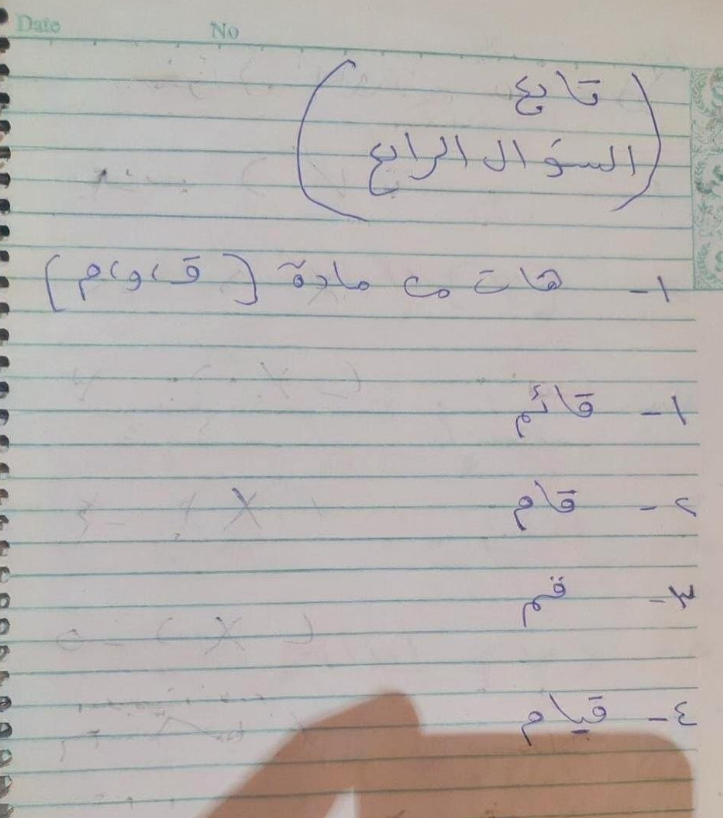 Date No
تابع
السؤال الرابع
١- هات من مادة [ق، و، م]
١- قائم
٢- قام
٣- قم
٤- قيام